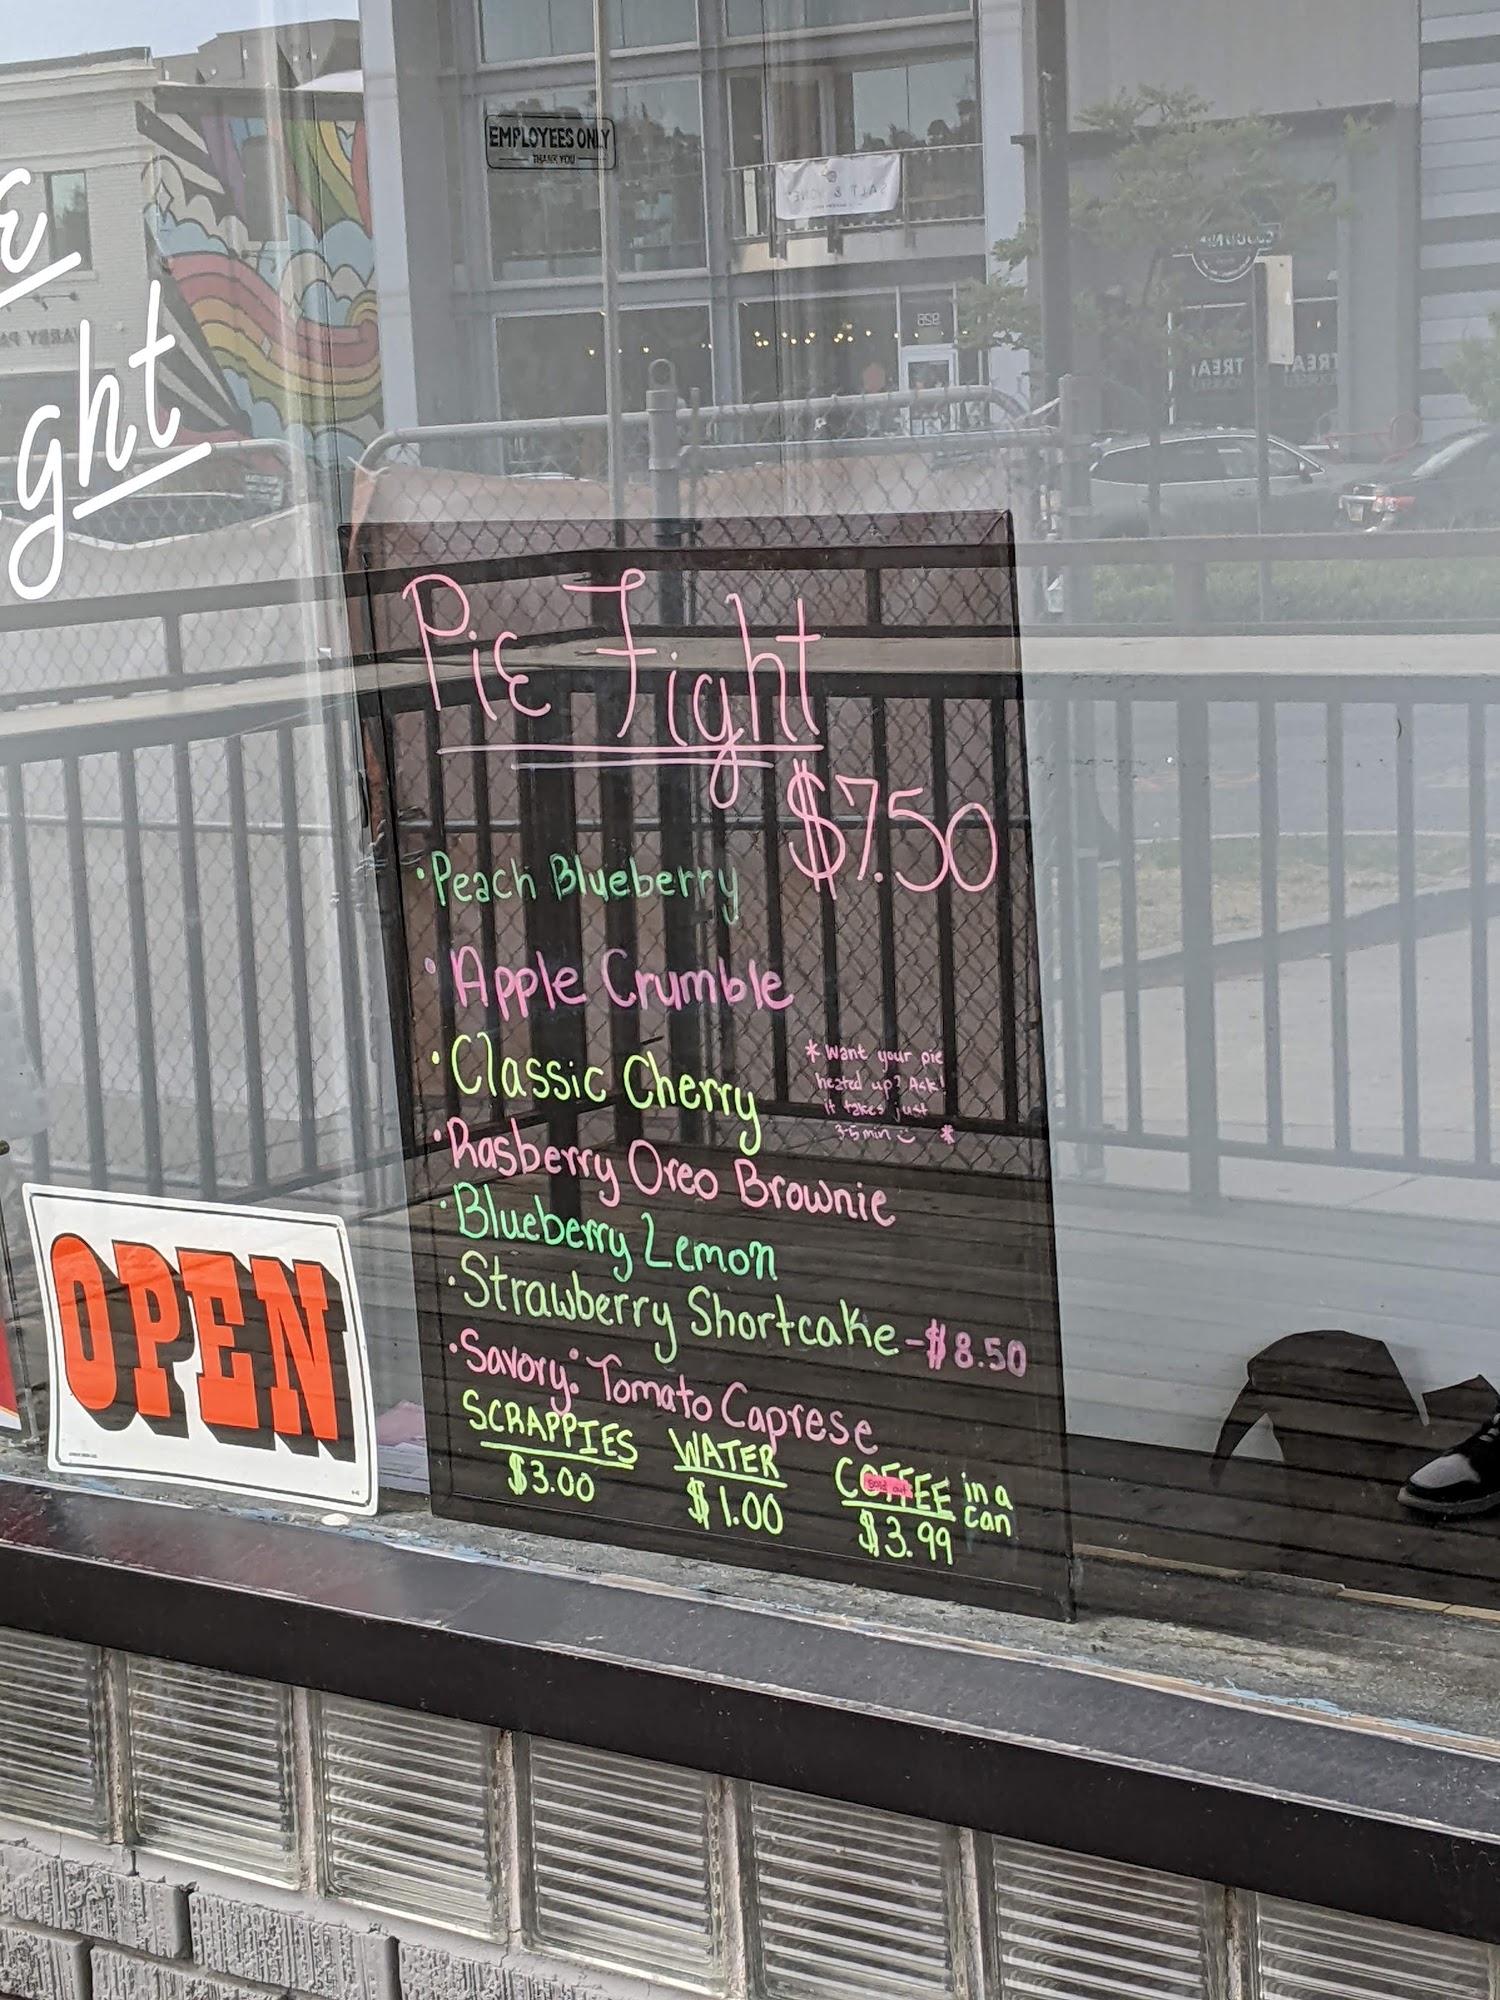 EMPLOYEES ONLY
THANK YOU
SALT & HONEY
928
TREAT
TREAT
ght
Pie Fight
$7.50
• Peach Blueberry
• Apple Crumble
• Classic Cherry
* Want your pie
heated up? Ask!
it takes just
3-5 min *
• Rasberry Oreo Brownie
• Blueberry Lemon
• Strawberry Shortcake - $8.50
• Savory: Tomato Caprese
SCRAPPIES
$3.00
WATER
$1.00
COFFEE in a
can
sold out
$3.99
OPEN